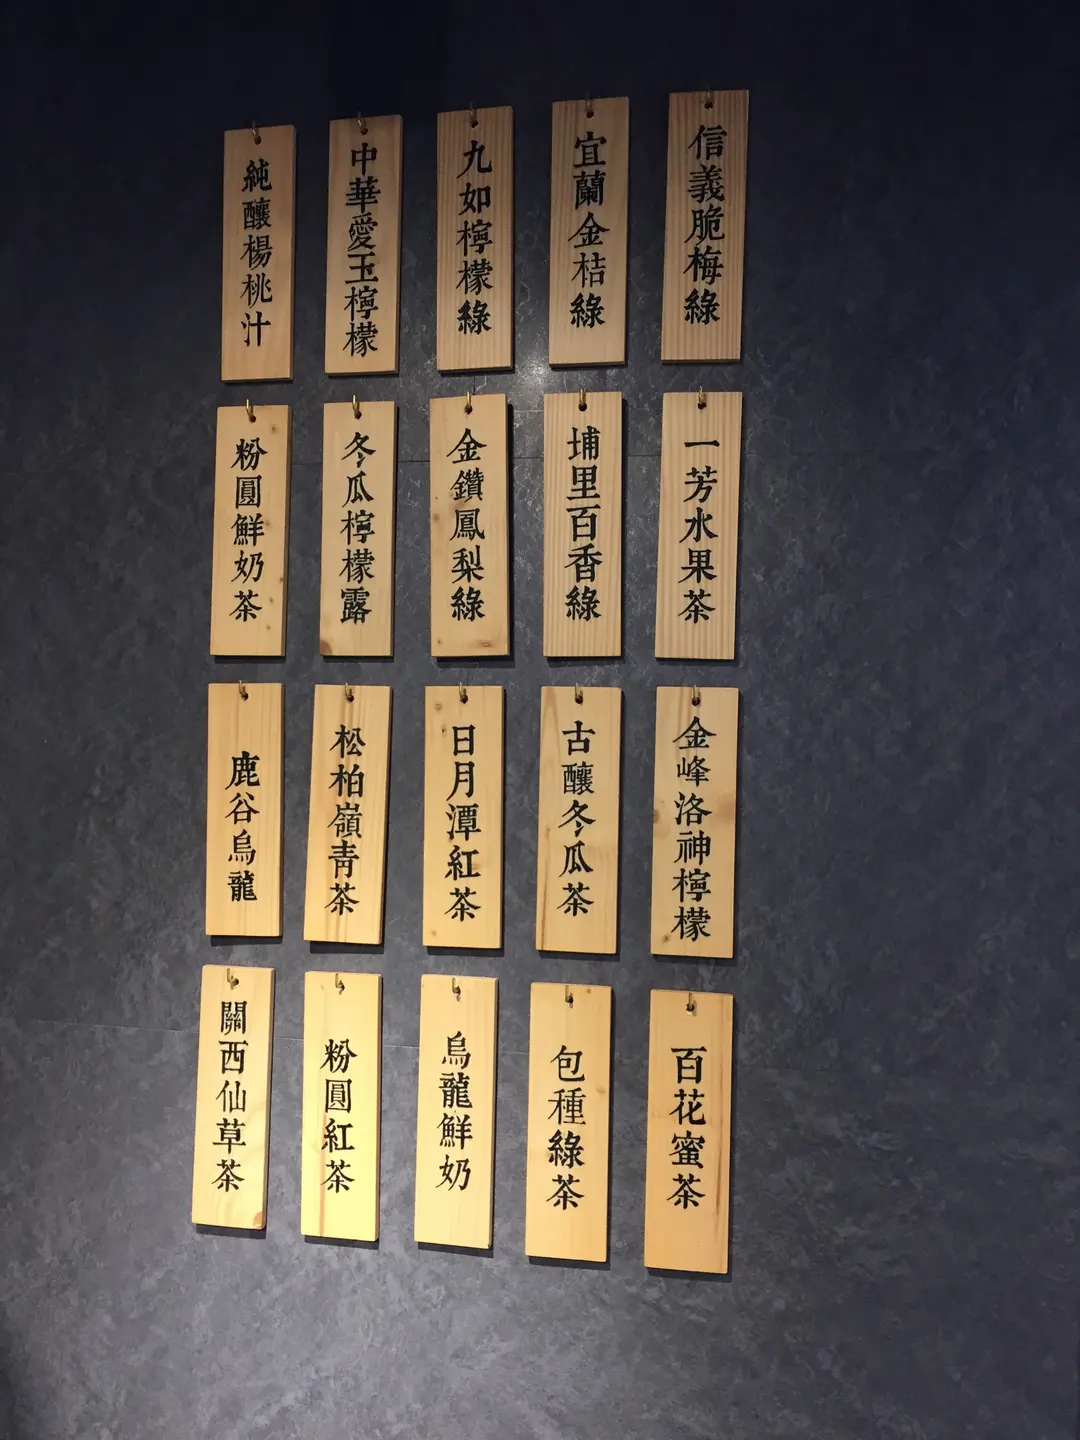 信義脆梅綠
宜蘭金桔綠
九如檸檬綠
中華愛玉檸檬
純釀楊桃汁
一芳水果茶
埔里百香綠
金鑽鳳梨綠
冬瓜檸檬露
粉圓鮮奶茶
金峰洛神檸檬
古釀冬瓜茶
日月潭紅茶
松柏嶺青茶
鹿谷烏龍
百花蜜茶
包種綠茶
烏龍鮮奶
粉圓紅茶
關西仙草茶